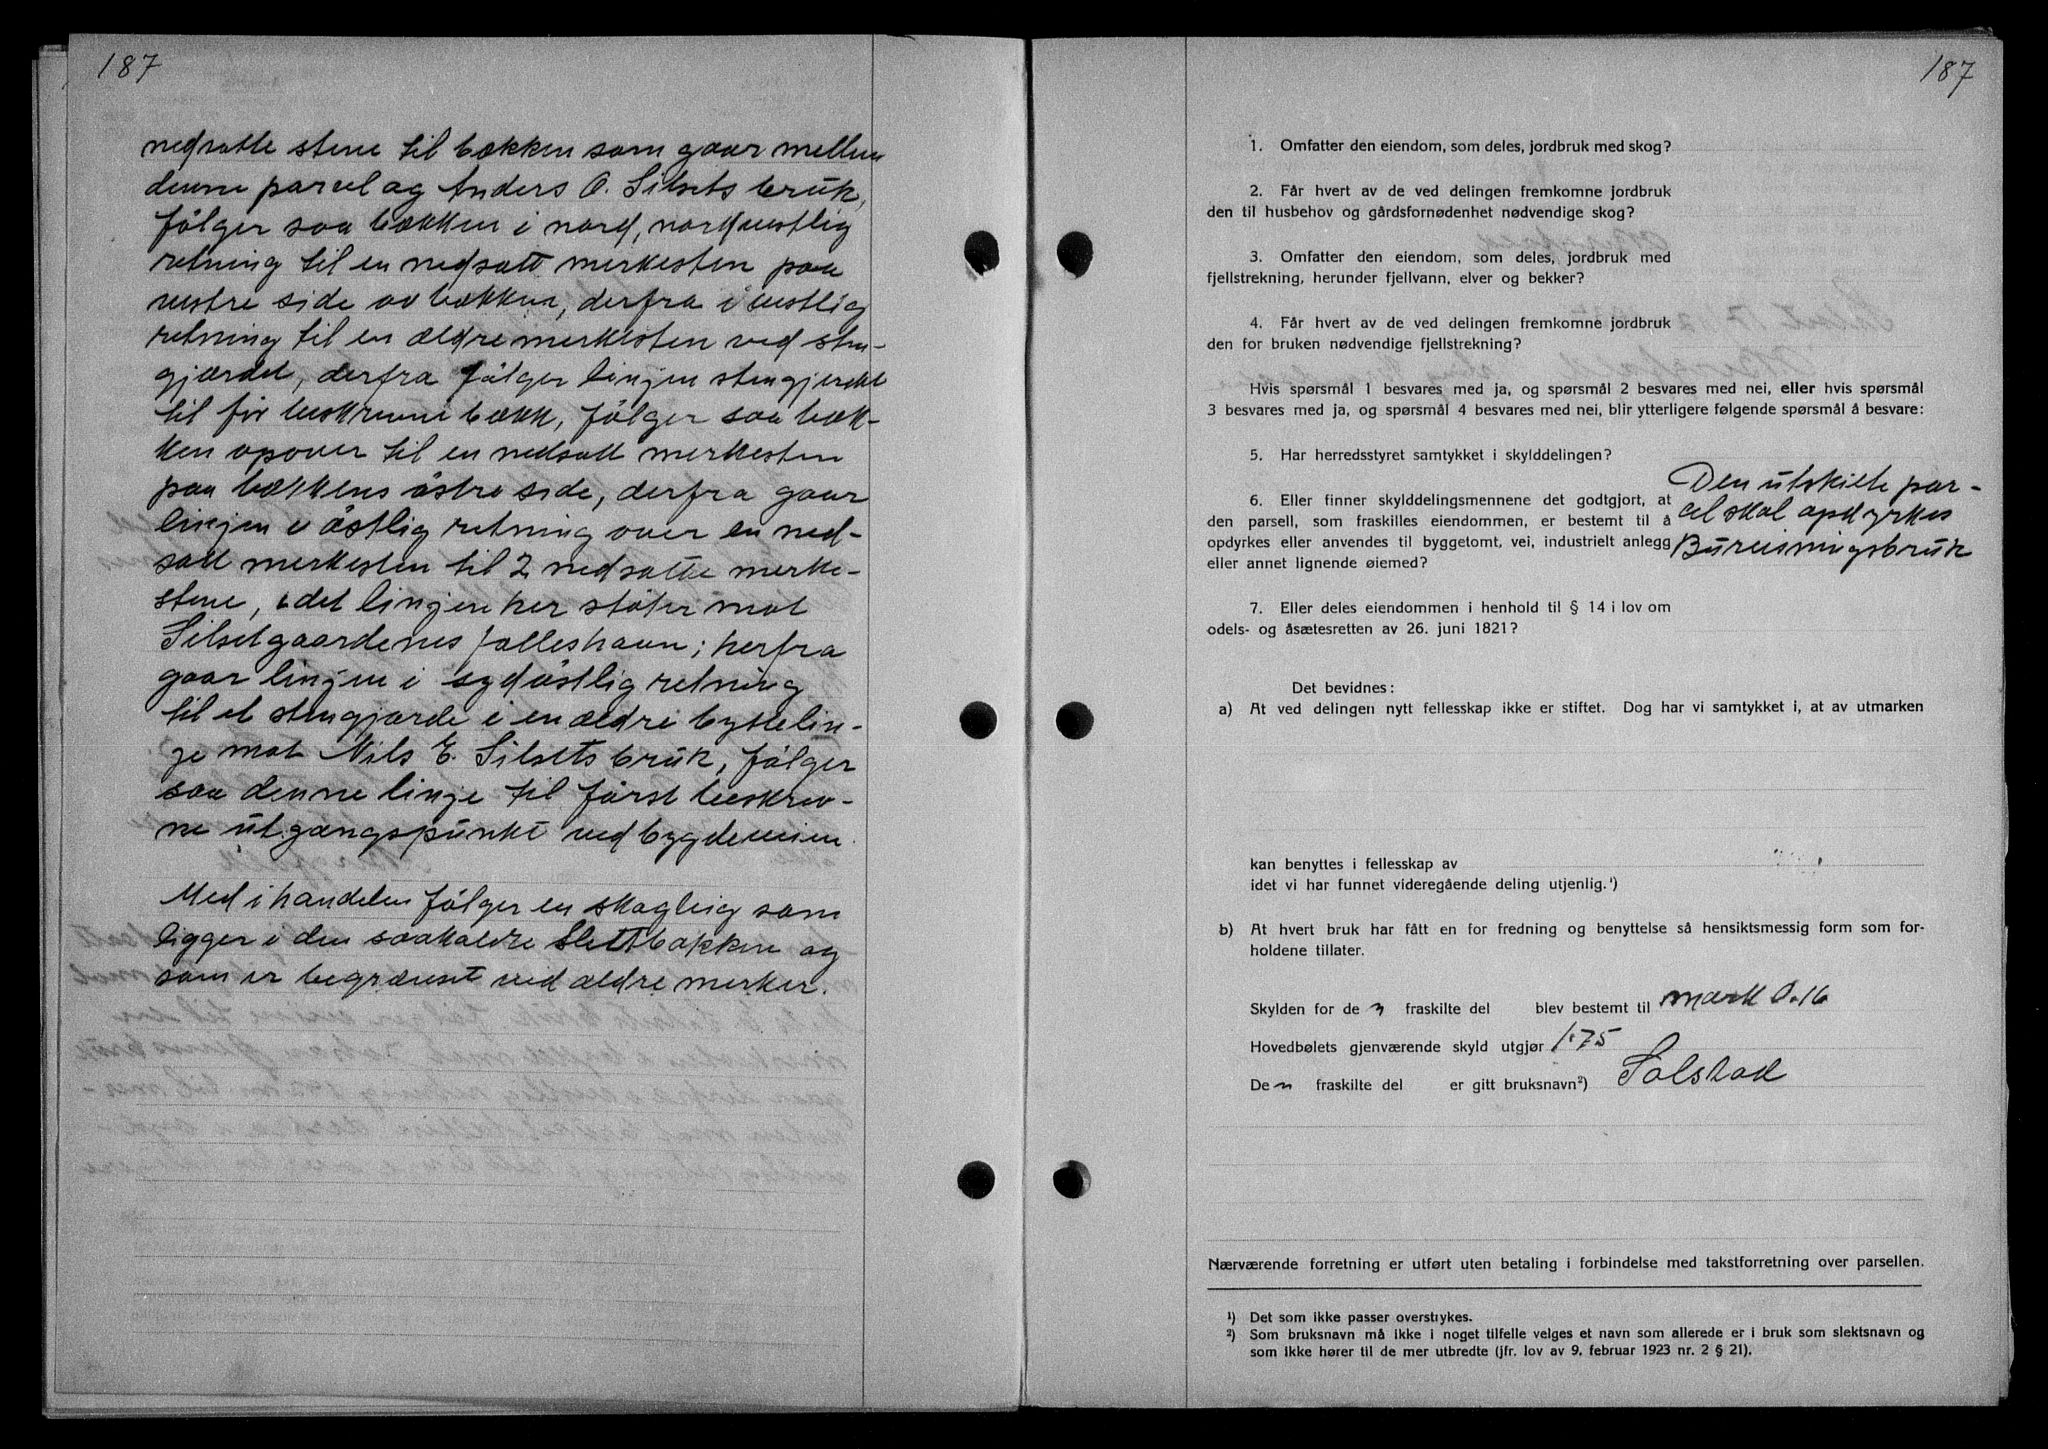 187
nedsatte stene til bækken som gaar mellem
denne parcel og Anders O. Silsets bruk,
følger saa bækken i nord, nordvestlig
retning til en nedsatt merkesten paa
vestre side av bækken, derfra i vestlig
retning til en ældre merkesten ved sten-
gjærdet, derfra følger linjen stengjerdet
til før beskrevne bækk, følger saa bæk-
ken opover til en nedsatt merkesten
paa bækkens østre side, derfra gaar
linjen i østlig retning over en ned-
satt merkesten til 2 nedsatte merke-
stene, idet linjene her støter mot
Silsetgaardenes felleshavn; herfra
gaar linjen i sydøstlig retning
til et stengjærde i en ældre byttelin-
je mot Nils E. Silsets bruk, følger
saa denne linje til først beskrev-
ne utgangspunkt ved bygdeveien.
Med i handelen følger en skogteig som
ligger i den saakaldte Slettbakken og
som er begrænset ved ældre merker.
187
1. Omfatter den eiendom, som deles, jordbruk med skog?
2. Får hvert av de ved delingen fremkomne jordbruk
den til husbehov og gårdsfornødenhet nødvendige skog?
3. Omfatter den eiendom, som deles, jordbruk med
fjellstrekning, herunder fjellvann, elver og bekker?
4. Får hvert av de ved delingen fremkomne jordbruk
den for bruken nødvendige fjellstrekning?
Hvis spørsmål 1 besvares med ja, og spørsmål 2 besvares med nei, eller hvis spørsmål
3 besvares med ja, og spørsmål 4 besvares med nei, blir ytterligere følgende spørsmål å besvare:
5. Har herredsstyret samtykket i skylddelingen?
6. Eller finner skylddelingsmennene det godtgjort, at
den parsell, som fraskilles eiendommen, er bestemt til å
opdyrkes eller anvendes til byggetomt, vei, industrielt anlegg
eller annet lignende øiemed?
Den utskilte par-
cel skal opdyrkes
Bureisningsbruk
7. Eller deles eiendommen i henhold til § 14 i lov om
odels- og åsætesretten av 26. juni 1821?
Det bevidnes:
a) At ved delingen nytt fellesskap ikke er stiftet. Dog har vi samtykket i, at av utmarken
kan benyttes i fellesskap av
idet vi har funnet videregående deling utjenlig.¹)
b) At hvert bruk har fått en for fredning og benyttelse så hensiktsmessig form som for-
holdene tillater.
Skylden for de n fraskilte del blev bestemt til mark 0.16
Hovedbølets gjenværende skyld utgjør 1.75
De n fraskilte del er gitt bruksnavn²) Solstad
Nærværende forretning er utført uten betaling i forbindelse med takstforretning over parsellen.
¹) Det som ikke passer overstrykes.
²) Som bruksnavn må ikke i noget tilfelle velges et navn som allerede er i bruk som slektsnavn og
som ikke hører til de mer utbredte (jfr. lov av 9. februar 1923 nr. 2 § 21).